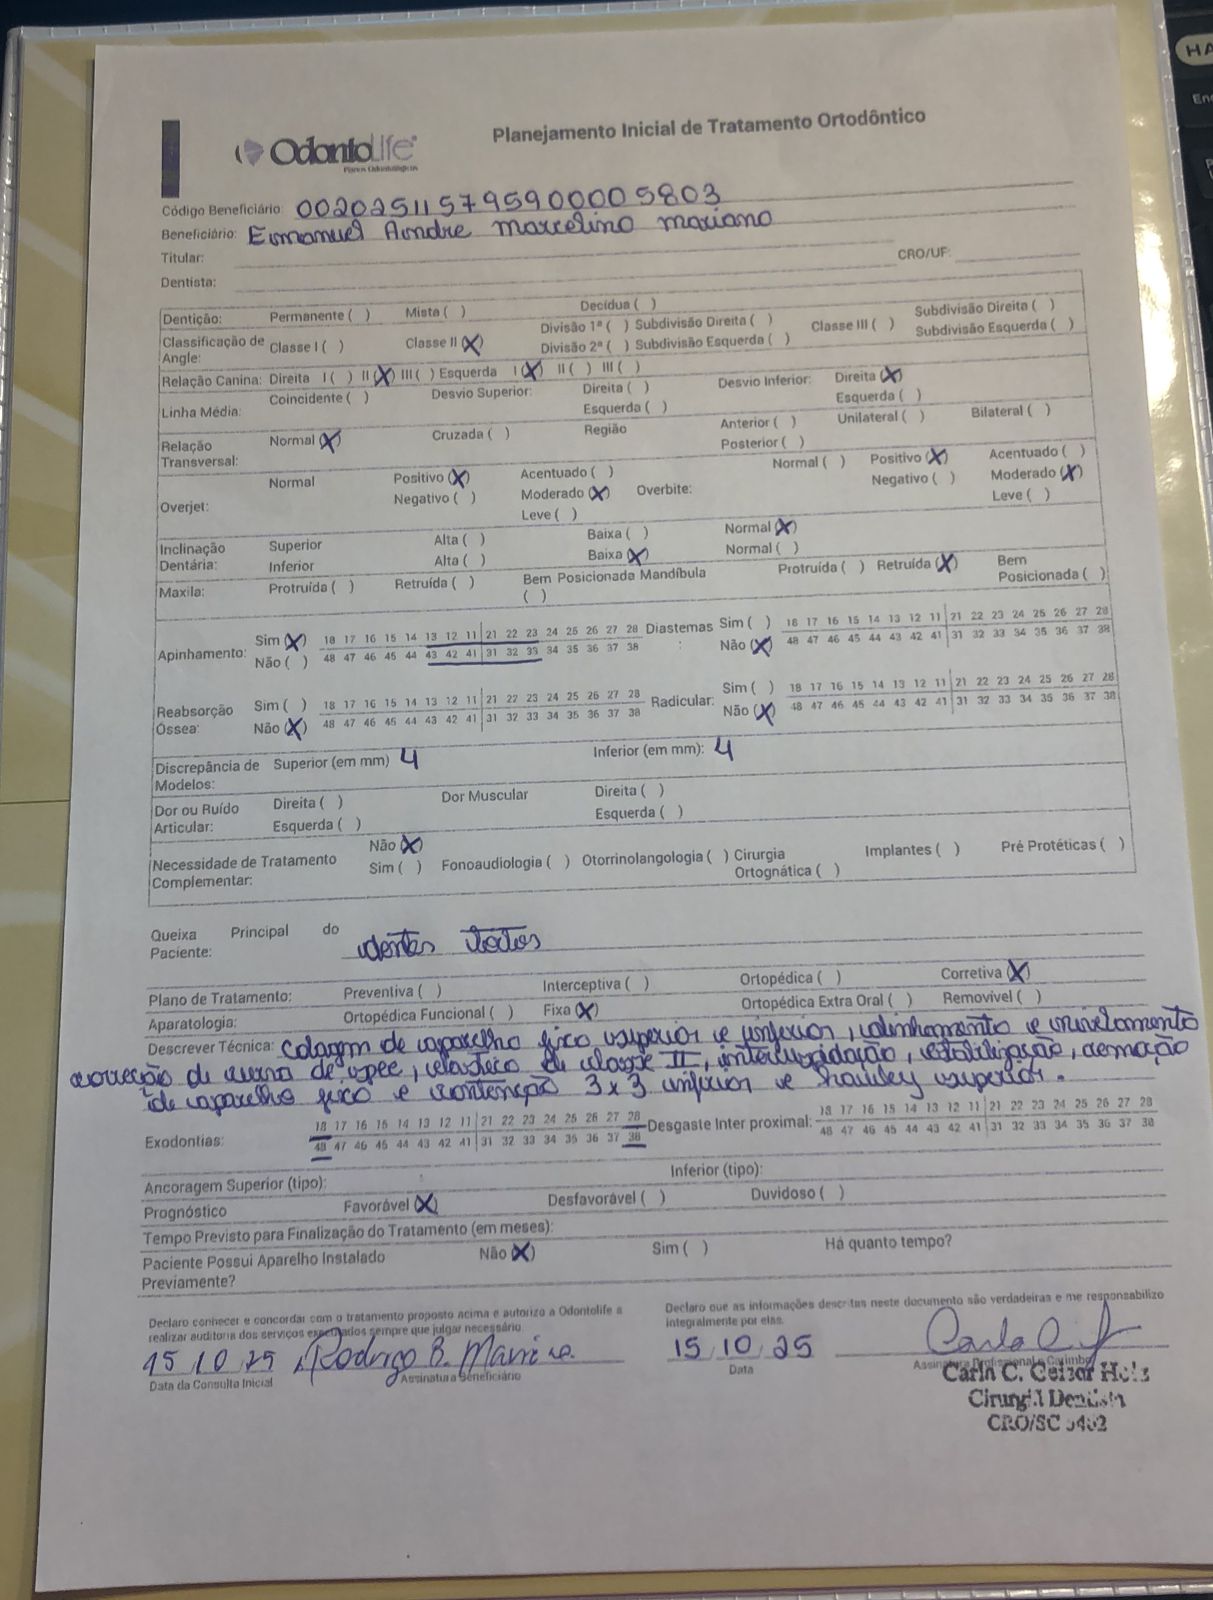 Planejamento Inicial de Tratamento Ortodôntico
OdontoLife
Planos Odontológicos
Código Beneficiário: 002025115795900005803
Beneficiário: Emanuel Andre Marcelino Mariano
Titular: CRO/UF:
Dentista:
Dentição: Permanente ( ) Mista ( ) Decídua ( )
Classificação de Angle: Classe I ( ) Classe II (X) Divisão 1ª ( ) Subdivisão Direita ( ) Classe III ( ) Subdivisão Direita ( )
Divisão 2ª ( ) Subdivisão Esquerda ( ) Subdivisão Esquerda ( )
Relação Canina: Direita I ( ) II (X) III ( ) Esquerda I (X) II ( ) III ( )
Linha Média: Coincidente ( ) Desvio Superior: Direita ( ) Desvio Inferior: Direita (X)
Esquerda ( ) Esquerda ( )
Relação Transversal: Normal (X) Cruzada ( ) Região Anterior ( ) Unilateral ( ) Bilateral ( )
Posterior ( )
Overjet: Normal Positivo (X) Acentuado ( ) Overbite: Normal ( ) Positivo (X) Acentuado ( )
Negativo ( ) Moderado (X) Negativo ( ) Moderado (X)
Leve ( ) Leve ( )
Inclinação Dentária: Superior Alta ( ) Baixa ( ) Normal (X)
Inferior Alta ( ) Baixa (X) Normal ( )
Maxila: Protruída ( ) Retruída ( ) Bem Posicionada ( ) Mandíbula Protruída ( ) Retruída (X) Bem Posicionada ( )
Apinhamento: Sim (X) 18 17 16 15 14 13 12 11 21 22 23 24 25 26 27 28 Diastemas: Sim ( ) 18 17 16 15 14 13 12 11 21 22 23 24 25 26 27 28
Não ( ) 48 47 46 45 44 43 42 41 31 32 33 34 35 36 37 38 Não (X) 48 47 46 45 44 43 42 41 31 32 33 34 35 36 37 38
Reabsorção Óssea: Sim ( ) 18 17 16 15 14 13 12 11 21 22 23 24 25 26 27 28 Radicular: Sim ( ) 18 17 16 15 14 13 12 11 21 22 23 24 25 26 27 28
Não (X) 48 47 46 45 44 43 42 41 31 32 33 34 35 36 37 38 Não (X) 48 47 46 45 44 43 42 41 31 32 33 34 35 36 37 38
Discrepância de Modelos: Superior (em mm) 4 Inferior (em mm): 4
Dor ou Ruído Articular: Direita ( ) Dor Muscular Direita ( )
Esquerda ( ) Esquerda ( )
Necessidade de Tratamento Complementar: Não (X)
Sim ( ) Fonoaudiologia ( ) Otorrinolangologia ( ) Cirurgia Ortognática ( ) Implantes ( ) Pré Protéticas ( )
Queixa Principal do Paciente: dentes tortos
Plano de Tratamento: Preventiva ( ) Interceptiva ( ) Ortopédica ( ) Corretiva (X)
Aparatologia: Ortopédica Funcional ( ) Fixa (X) Ortopédica Extra Oral ( ) Removível ( )
Descrever Técnica: Colagem de aparelho fixo superior e inferior, alinhamento e nivelamento
correção de curva de spee, elástico de classe II, intercuspidação, estabilização, remoção
de aparelho fixo e contenção 3x3 inferior e hawley superior.
Exodontias: 18 17 16 15 14 13 12 11 21 22 23 24 25 26 27 28 Desgaste Inter proximal: 18 17 16 15 14 13 12 11 21 22 23 24 25 26 27 28
48 47 46 45 44 43 42 41 31 32 33 34 35 36 37 38 48 47 46 45 44 43 42 41 31 32 33 34 35 36 37 38
Ancoragem Superior (tipo): Inferior (tipo):
Prognóstico Favorável (X) Desfavorável ( ) Duvidoso ( )
Tempo Previsto para Finalização do Tratamento (em meses):
Paciente Possui Aparelho Instalado Previamente? Não (X) Sim ( ) Há quanto tempo?
Declaro conhecer e concordar com o tratamento proposto acima e autorizo a Odontolife a
realizar auditoria dos serviços executados sempre que julgar necessário
Declaro que as informações descritas neste documento são verdadeiras e me responsabilizo
integralmente por elas.
15 10 25 Rodrigo B.
Data da Consulta Inicial Assinatura Beneficiário
15 10 25 Carla C.
Data Assinatura Profissional e Carimbo
Carla C.
Cirurgiã Dentista
CRO/SC
HA